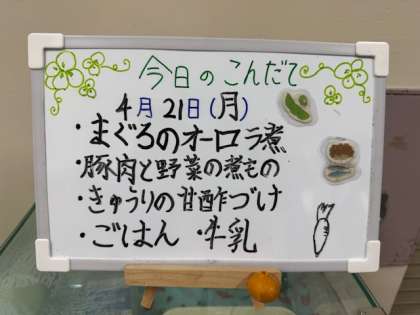 今日のこんだて
4月21日(月)
・まぐろのオーロラ煮
・豚肉と野菜の煮もの
・きゅうりの甘酢づけ
・ごはん ・牛乳